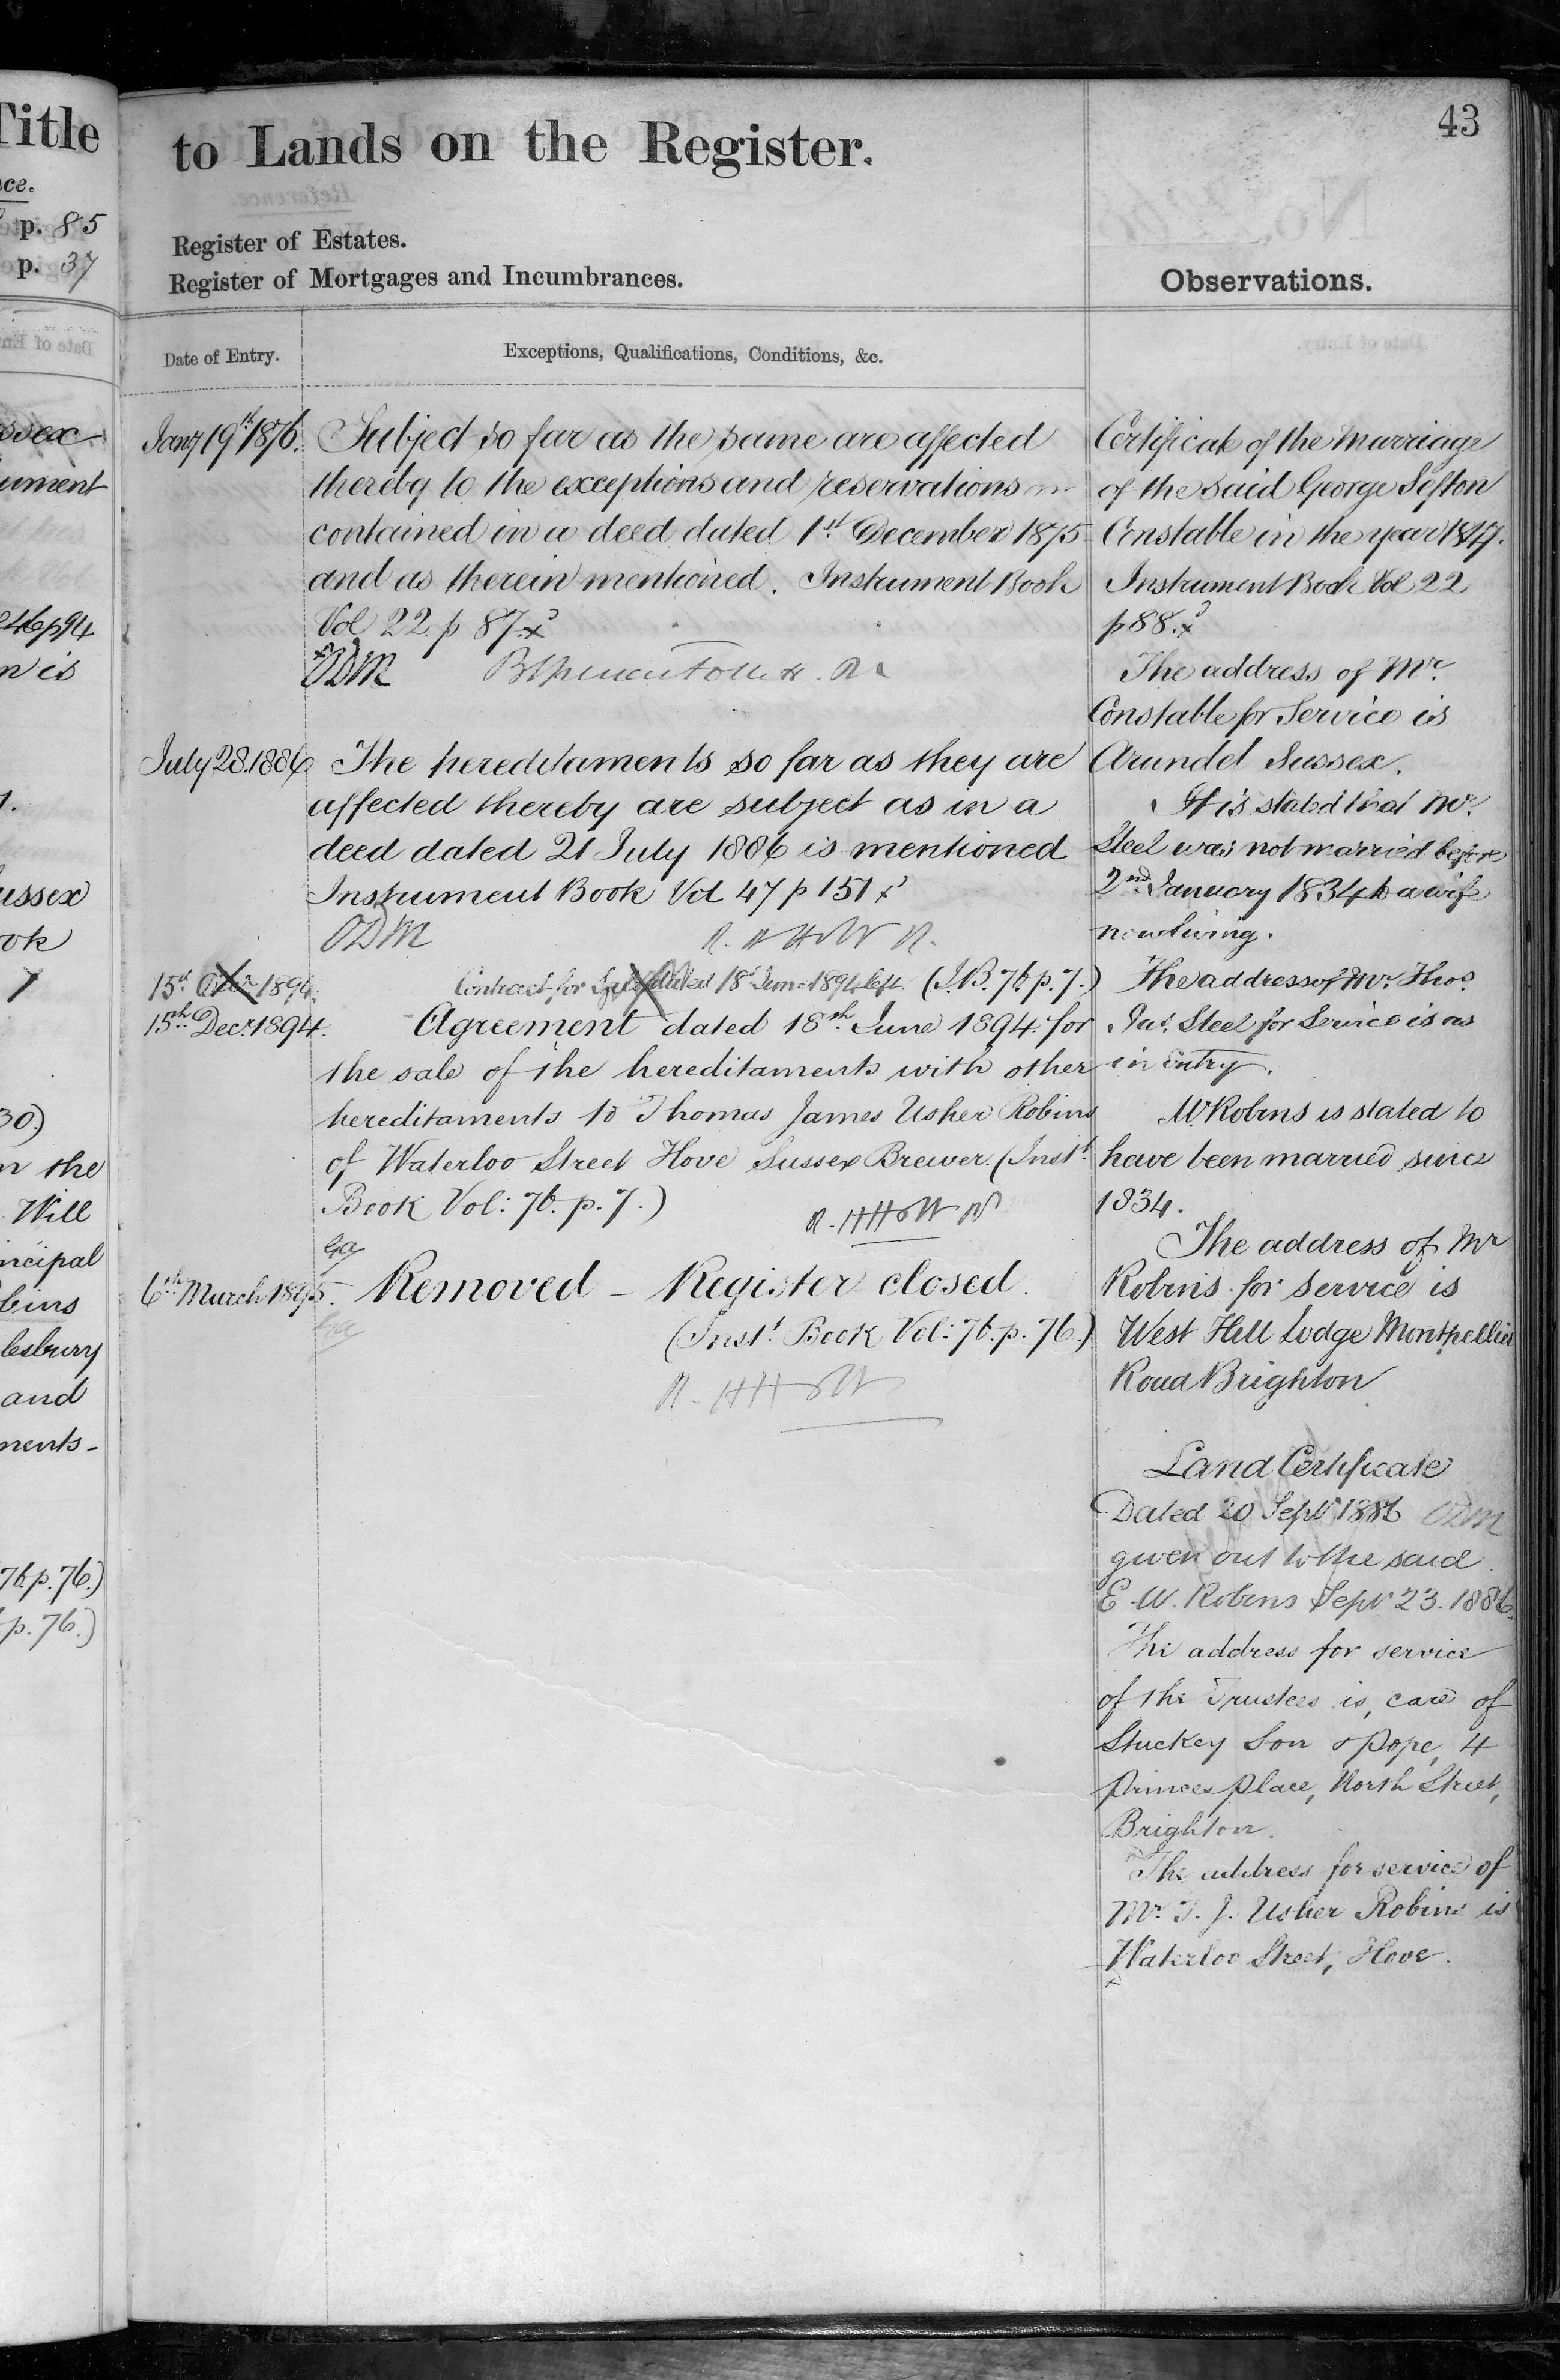 Title
p. 85
p. 37
43
to Lands on the Register.
Register of Estates.
Register of Mortgages and Incumbrances.
Observations.
Date of Entry.
Exceptions, Qualifications, Conditions, &c.
Jany 19th 1876. Subject so far as the same are affected
thereby to the exceptions and reservations
contained in a deed dated 1st December 1875
and as therein mentioned. Instrument Book
Vol 22. p 87. x
x ODM
July 28. 1886 The hereditaments so far as they are
affected thereby are subject as in a
deed dated 21 July 1886 is mentioned
Instrument Book Vol 47 p 151 x
ODM
15th 1894. Contract for Sale dated 18th June 1894 left (I.B. 76. p. 7.)
15th Decr. 1894. Agreement dated 18th June 1894 for
the sale of the hereditaments with other
hereditaments to Thomas James Usher Robins
of Waterloo Street Hove Sussex Brewer. (Inst.
Book Vol: 76. p. 7.)
6th March 1895. Removed – Register closed.
(Inst. Book Vol: 76. p. 76.)
Certificate of the Marriage
of the said George Sefton
Constable in the year 1847.
Instrument Book Vol 22
p 88. x
The address of Mr.
Constable for Service is
Arundel Sussex.
It is stated that Mr.
Steel was not married before
2nd January 1834 to a wife
now living.
The address of Mr. Thos.
Jas. Steel for Service is as
in entry.
Mr Robins is stated to
have been married since
1834.
The address of Mr
Robins for service is
West Hill Lodge Montpellier
Road Brighton
Land Certificate
Dated 20 Septr 1886 ODM
given out to the said
E. W. Robins Septr 23. 1886.
The address for service
of the Trustees is, care of
Stuckey Son & Pope, 4
Princes Place, North Street,
Brighton.
The address for service of
Mr. T. J. Usher Robins is
Waterloo Street, Hove.